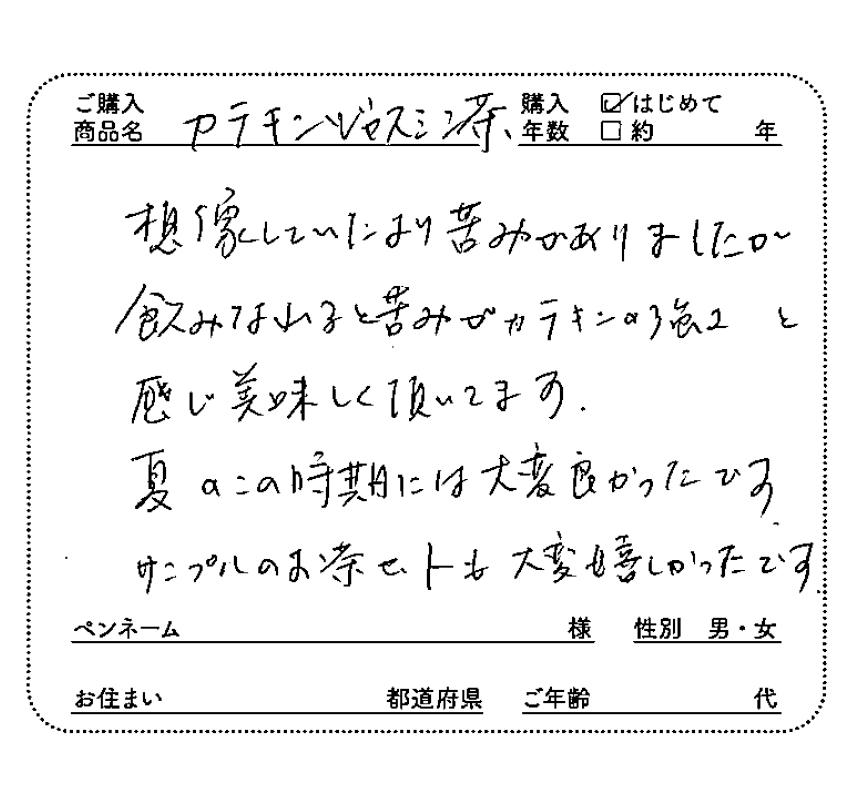 ご購入 商品名 カテキンジャスミン茶、 購入年数 ☑はじめて □約 年
想像していたより苦みがありましたが
飲みなれると苦みがカテキンの強さと
感じ美味しく頂いてます.
夏のこの時期には大変良かったです
サンプルのお茶セットも大変嬉しかったです.
ペンネーム 様 性別 男・女
お住まい 都道府県 ご年齢 代